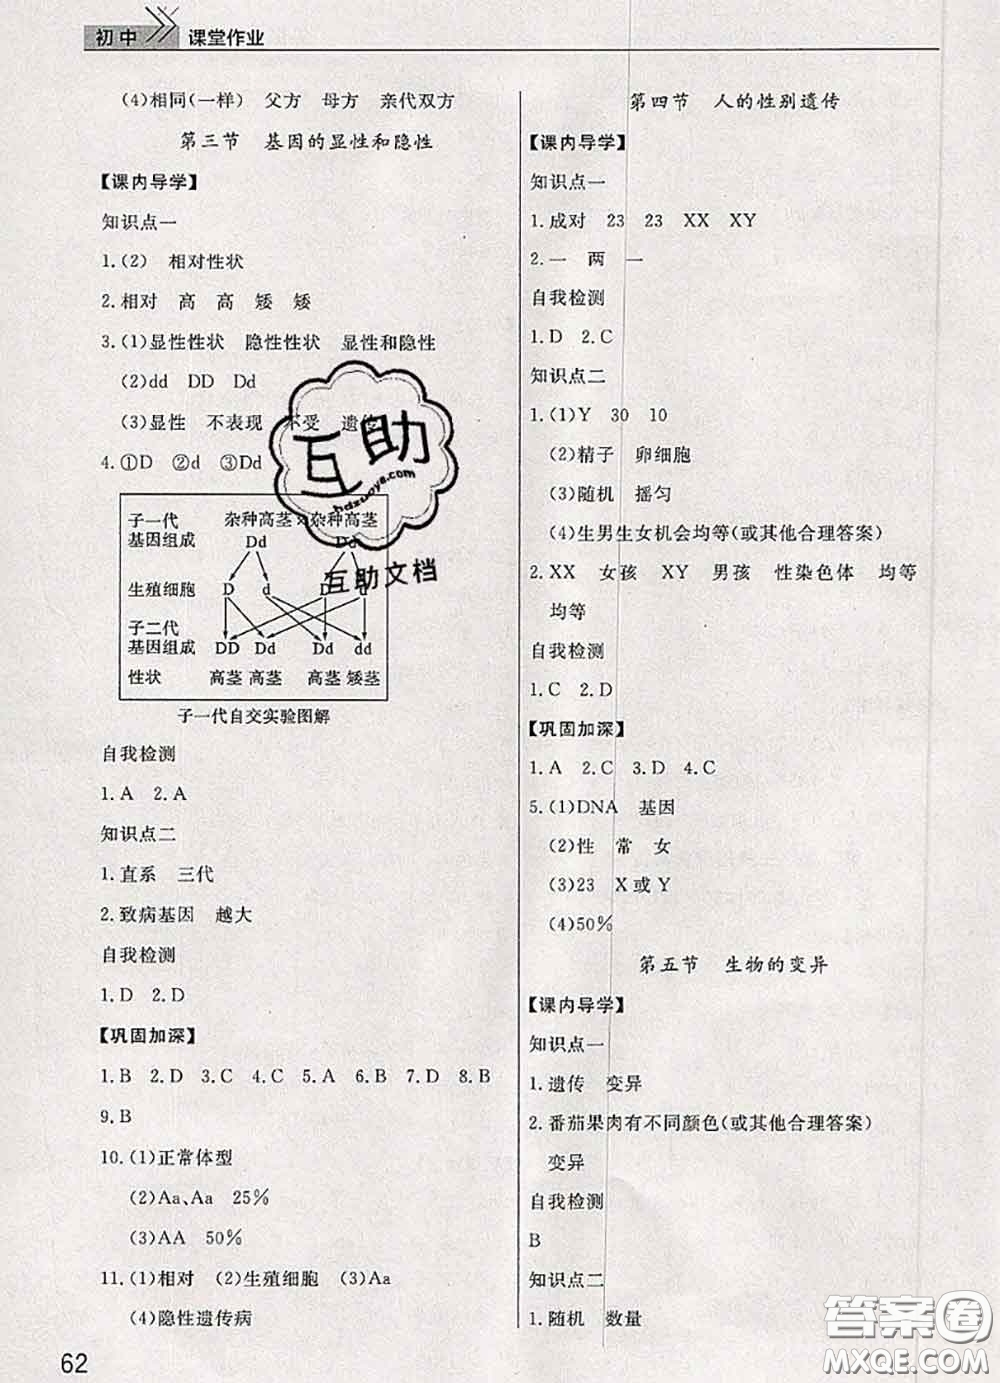 初中 课堂作业
(4)相同(一样) 父方 母方 亲代双方
第三节 基因的显性和隐性
【课内导学】
知识点一
1.(2) 相对性状
2.相对 高 高 矮 矮
3.(1)显性性状 隐性性状 显性和隐性
(2)dd DD Dd
(3)显性 不表现 不受 遗传
4.①D ②d ③Dd
子一代 杂种高茎×杂种高茎
基因组成 Dd Dd
生殖细胞 D d D d
子二代
基因组成 DD Dd Dd dd
性状 高茎 高茎 高茎 矮茎
子一代自交实验图解
自我检测
1.A 2.A
知识点二
1.直系 三代
2.致病基因 越大
自我检测
1.D 2.D
【巩固加深】
1.B 2.D 3.C 4.C 5.A 6.B 7.D 8.B
9.B
10.(1)正常体型
(2)Aa、Aa 25%
(3)AA 50%
11.(1)相对 (2)生殖细胞 (3)Aa
(4)隐性遗传病
62
第四节 人的性别遗传
【课内导学】
知识点一
1.成对 23 23 XX XY
2.一 两 一
自我检测
1.D 2.C
知识点二
1.(1)Y 30 10
(2)精子 卵细胞
(3)随机 摇匀
(4)生男生女机会均等(或其他合理答案)
2.XX 女孩 XY 男孩 性染色体 均等
均等
自我检测
1.C 2.D
【巩固加深】
1.A 2.C 3.D 4.C
5.(1)DNA 基因
(2)性 常 女
(3)23 X或Y
(4)50%
第五节 生物的变异
【课内导学】
知识点一
1.遗传 变异
2.番茄果肉有不同颜色(或其他合理答案)
变异
自我检测
B
知识点二
1.随机 数量
互助
hdzuoye.com
互助文档
答案圈
MXQE.COM